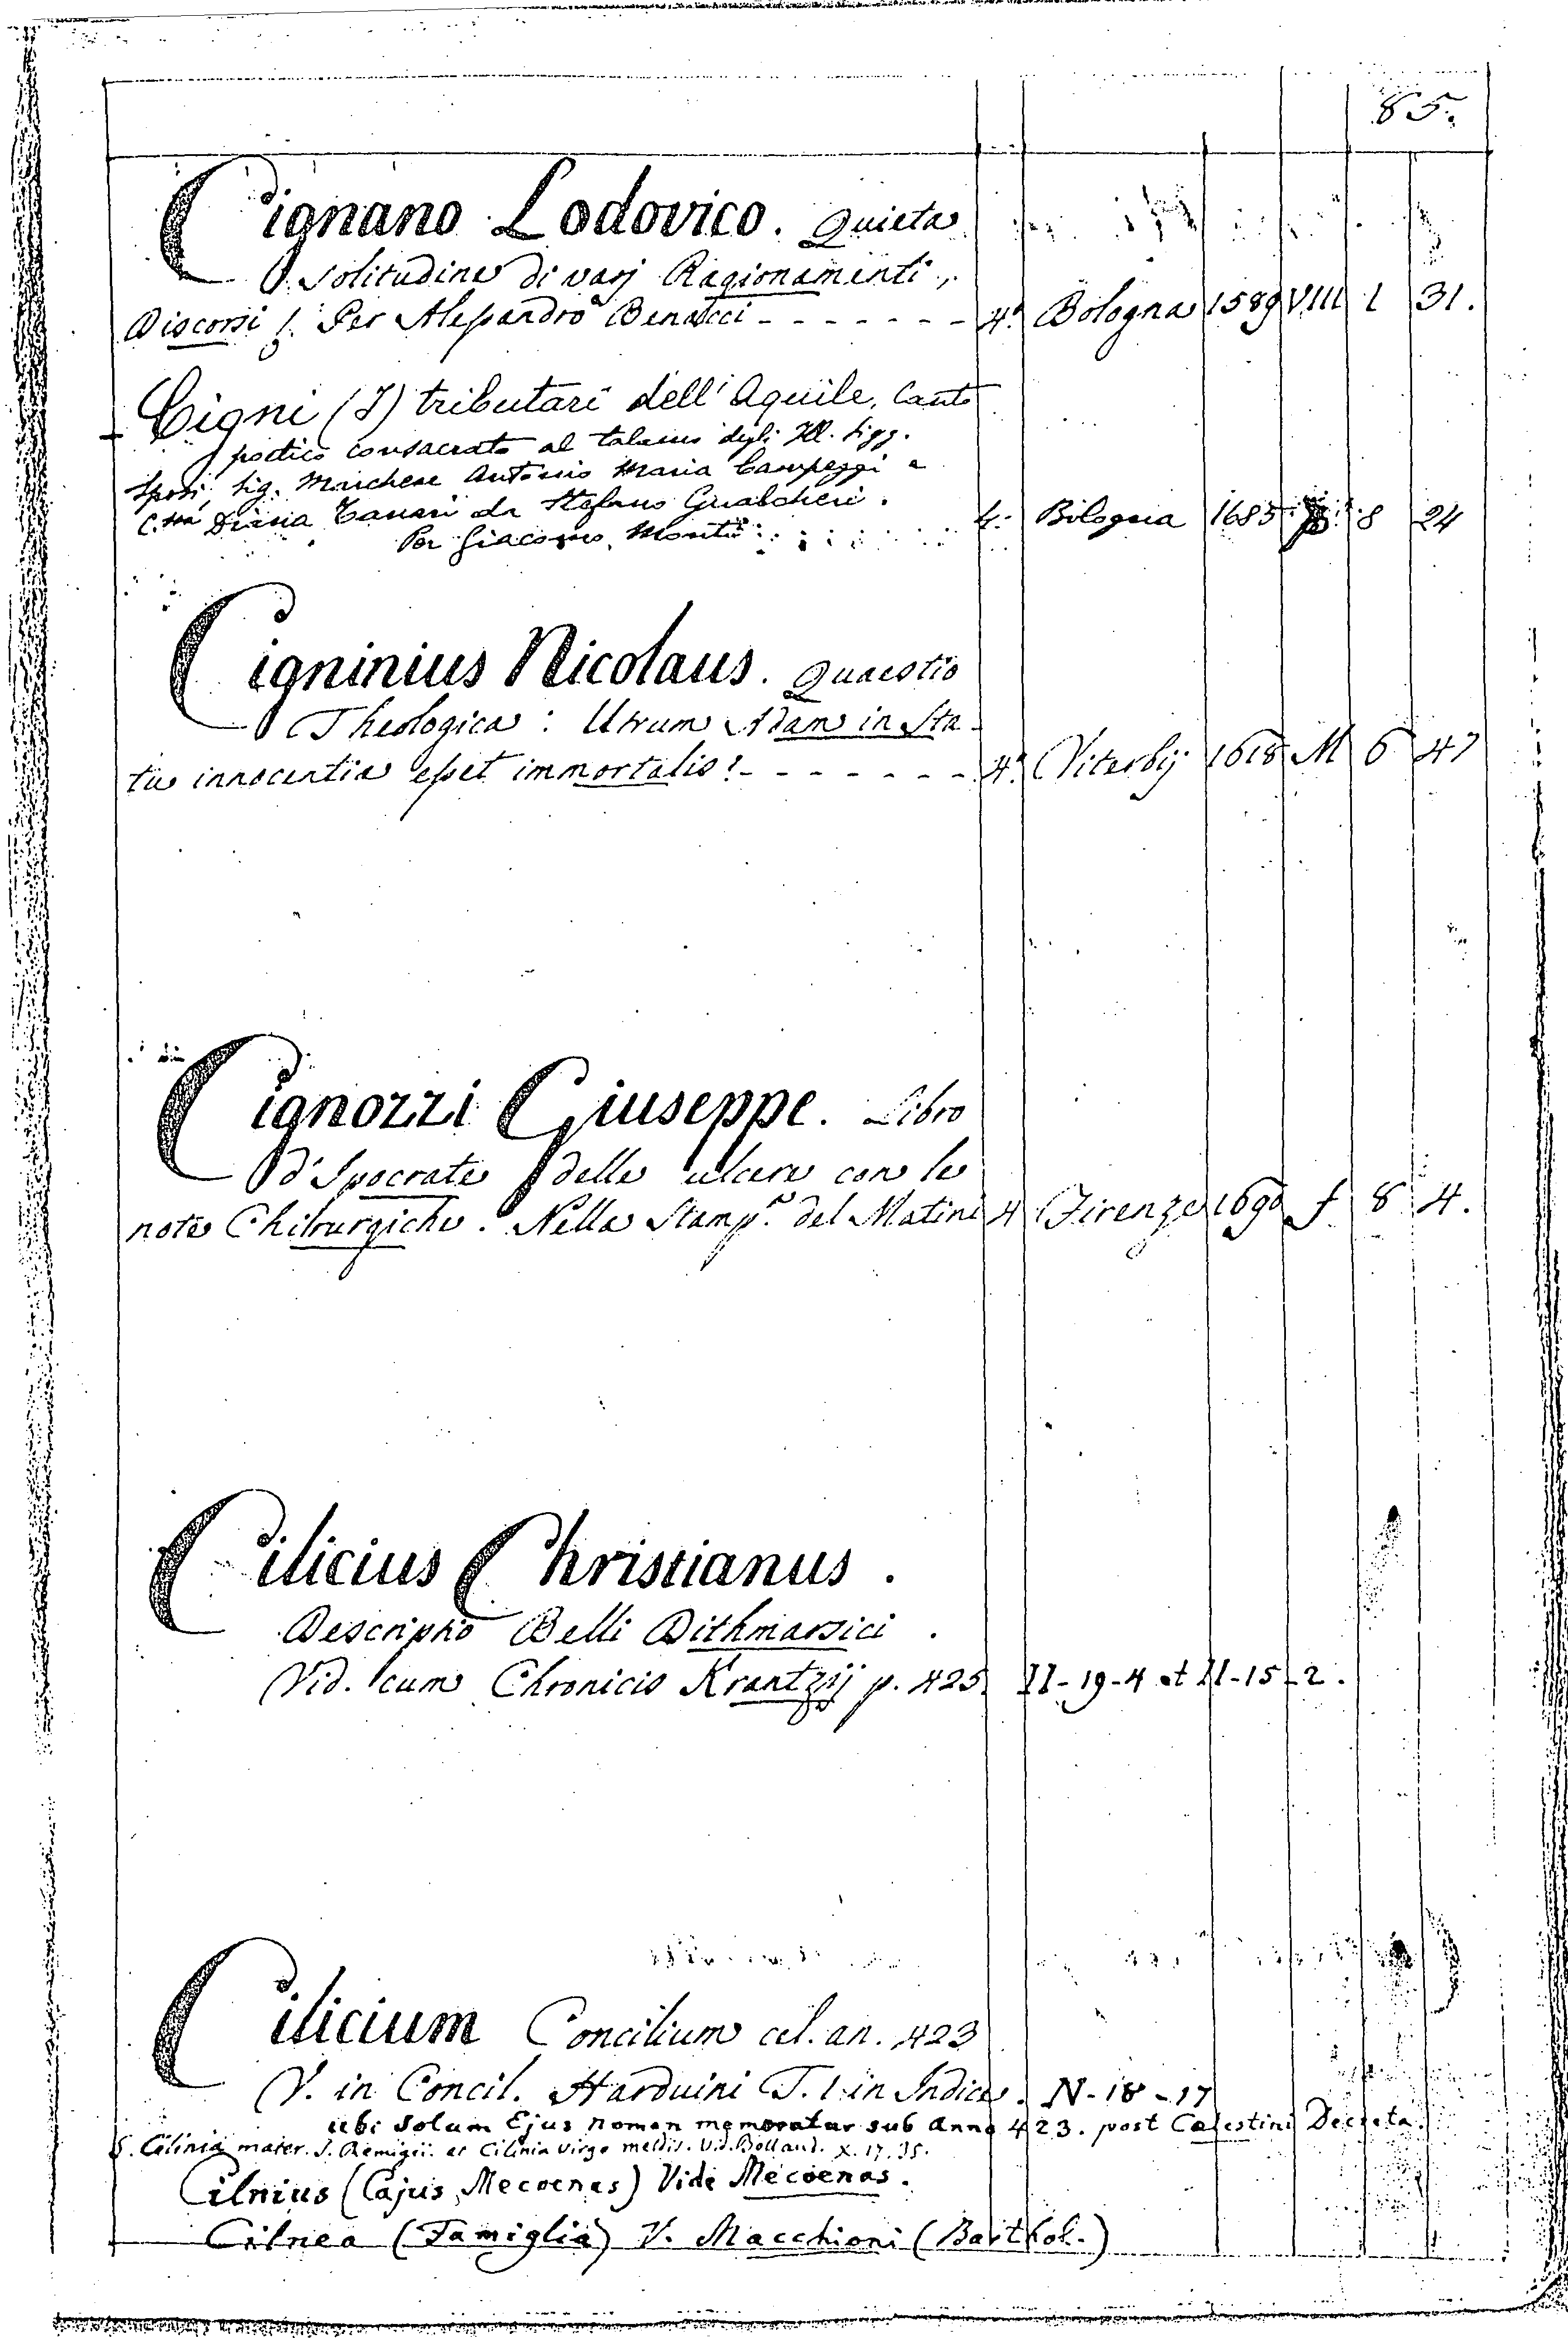 85.
Cignano Lodovico. Quieta
Solitudine di varj Ragionamenti,
Discorsi &. Per Alessandro Benacci - - - - - - - 4.° Bologna 1589 VIII 1 31.
Cigni (I) tributari dell'Aquile, Canto
poetico consacrato al talamo degli Ill. Sigg.
Sposi, Sig. Marchese Antonio Maria Campeggi e
C.ssa Diana Tanari da Stefano Gualcheri.
Per Giacomo Monti 4. Bologna 1685 8 24
Cigninius Nicolaus. Quaestio
Theologica: Utrum Adam in Sta-
tu innocentia esset immortalis? - - - - - - - 4.° Viterbij 1618 M 6 47
Cignozzi Giuseppe. Libro
d'Ipocrate delle ulcere con le
note Chirurgiche. Nella Stamp.a del Matini 4 Firenze 1690 f 8 4.
Cilicius Christianus.
Descriptio Belli Dithmarsici.
Vid. cum Chronicis Krantzij p. 425. II-19-4 et II-15-2.
Cilicium Concilium cel. an. 423
V. in Concil. Harduini T. 1 in Indice. N-18-17
ubi solum Ejus nomen memoratur sub Anno 423. post Calestini Decreta.
S. Cilinia mater. S. Remigii. et Cilinia Virgo meldis. Vid. Bolland. X. 17. 35.
Cilnius (Cajus Mecoenas) Vide Mecoenas.
Cilnea (Famiglia) V. Macchioni (Barthol.)